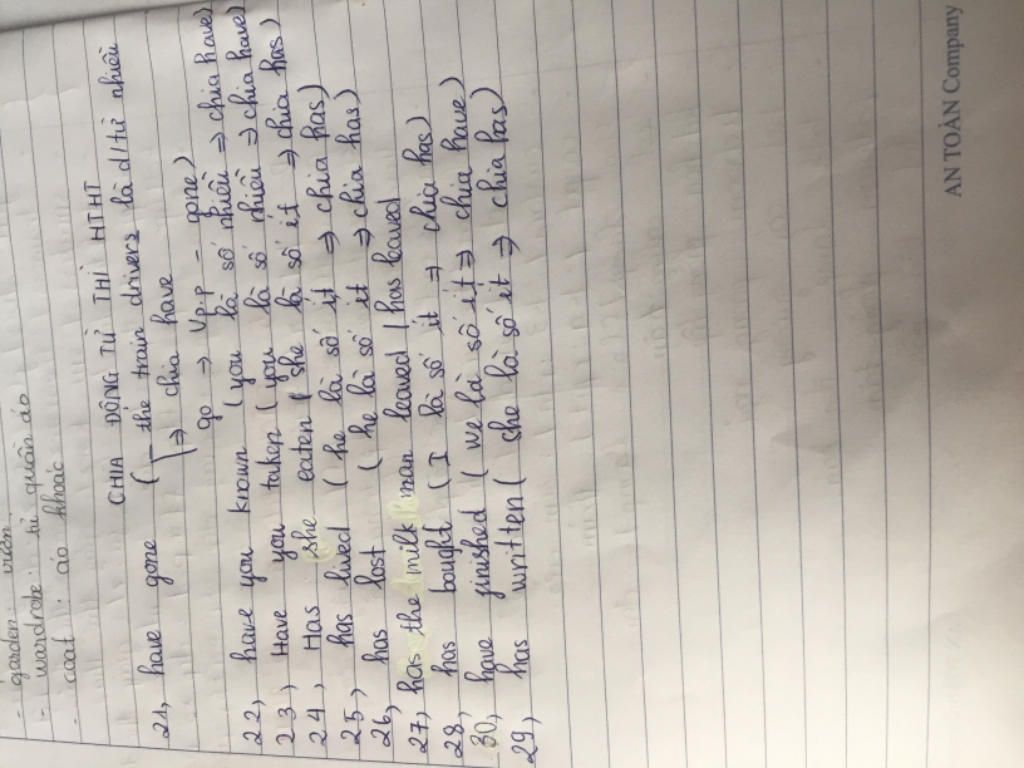 - garden : vườn
- wardrobe : tủ quần áo
- coat : áo khoác
CHIA ĐỘNG TỪ THÌ HTHT
21, have gone (- the train drivers là d/từ nhiều
⇒ chia have
go ⇒ Vpp - gone)
22, have you known (you là số nhiều ⇒ chia have)
23, Have you taken (you là số nhiều ⇒ chia have)
24, Has she eaten ( she là số ít ⇒ chia has)
25, has lived ( he là số ít ⇒ chia has)
26, has lost ( he là số ít ⇒ chia has)
27, has the milk man leaved / has leaved
28, has bought ( I là số ít ⇒ chia has)
30, have finished ( we là số ít ⇒ chia have)
29, has written ( she là số ít ⇒ chia has)
AN TOÀN Company